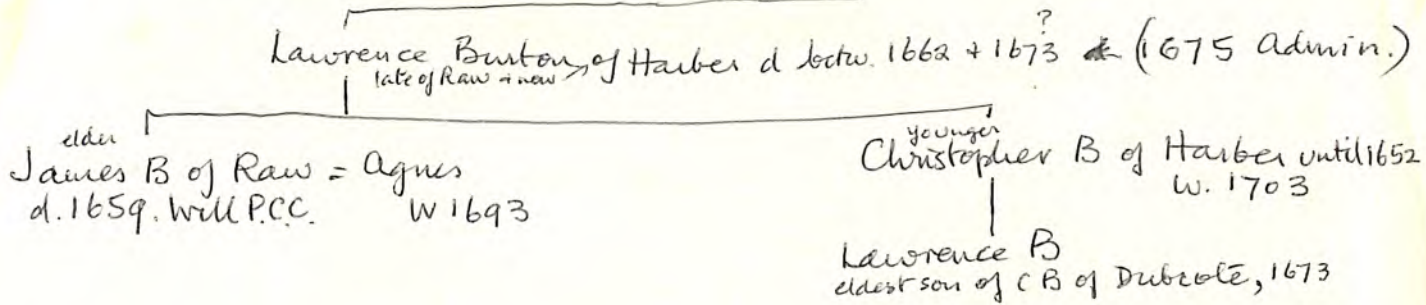 ?
Lawrence Burton, of Harber d betw. 1662 + 1673 (1675 Admin.)
late of Raw + now
elder
James B of Raw = Agnes
d. 1659. Will P.C.C. W 1693
younger
Christopher B of Harber until 1652
W. 1703
Lawrence B
eldest son of CB of Dubcote, 1673